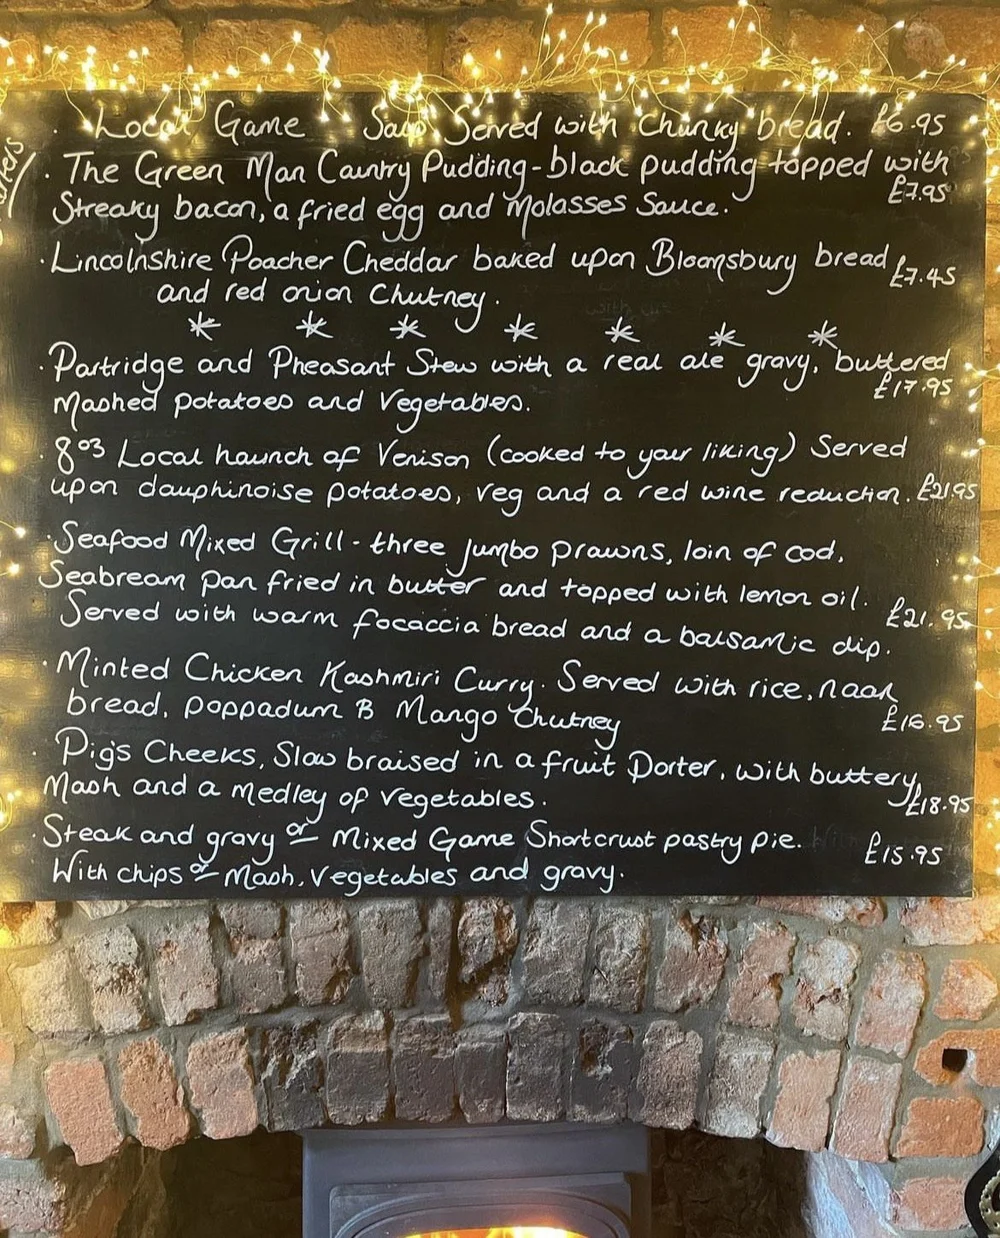 · Local Game Soup Served with chunky bread. £6.95
· The Green Man Country Pudding - black pudding topped with
£7.95
Streaky bacon, a fried egg and Molasses Sauce.
· Lincolnshire Poacher Cheddar baked upon Bloomsbury bread £7.45
and red onion Chutney.
* * * * * * *
· Partridge and Pheasant Stew with a real ale gravy, buttered
£17.95
Mashed potatoes and Vegetables.
· 8oz Local haunch of Venison (cooked to your liking) Served
upon dauphinoise potatoes, veg and a red wine reduction. £21.95
· Seafood Mixed Grill - three jumbo prawns, loin of cod,
Seabream pan fried in butter and topped with lemon oil.
£21.95
Served with warm focaccia bread and a balsamic dip.
· Minted Chicken Kashmiri Curry. Served with rice, naan
bread, poppadum & Mango Chutney £16.95
· Pig's Cheeks, Slow braised in a fruit Porter, with buttery
Mash and a medley of vegetables. £18.95
· Steak and gravy or Mixed Game Shortcrust pastry pie. £15.95
With chips or Mash, Vegetables and gravy.